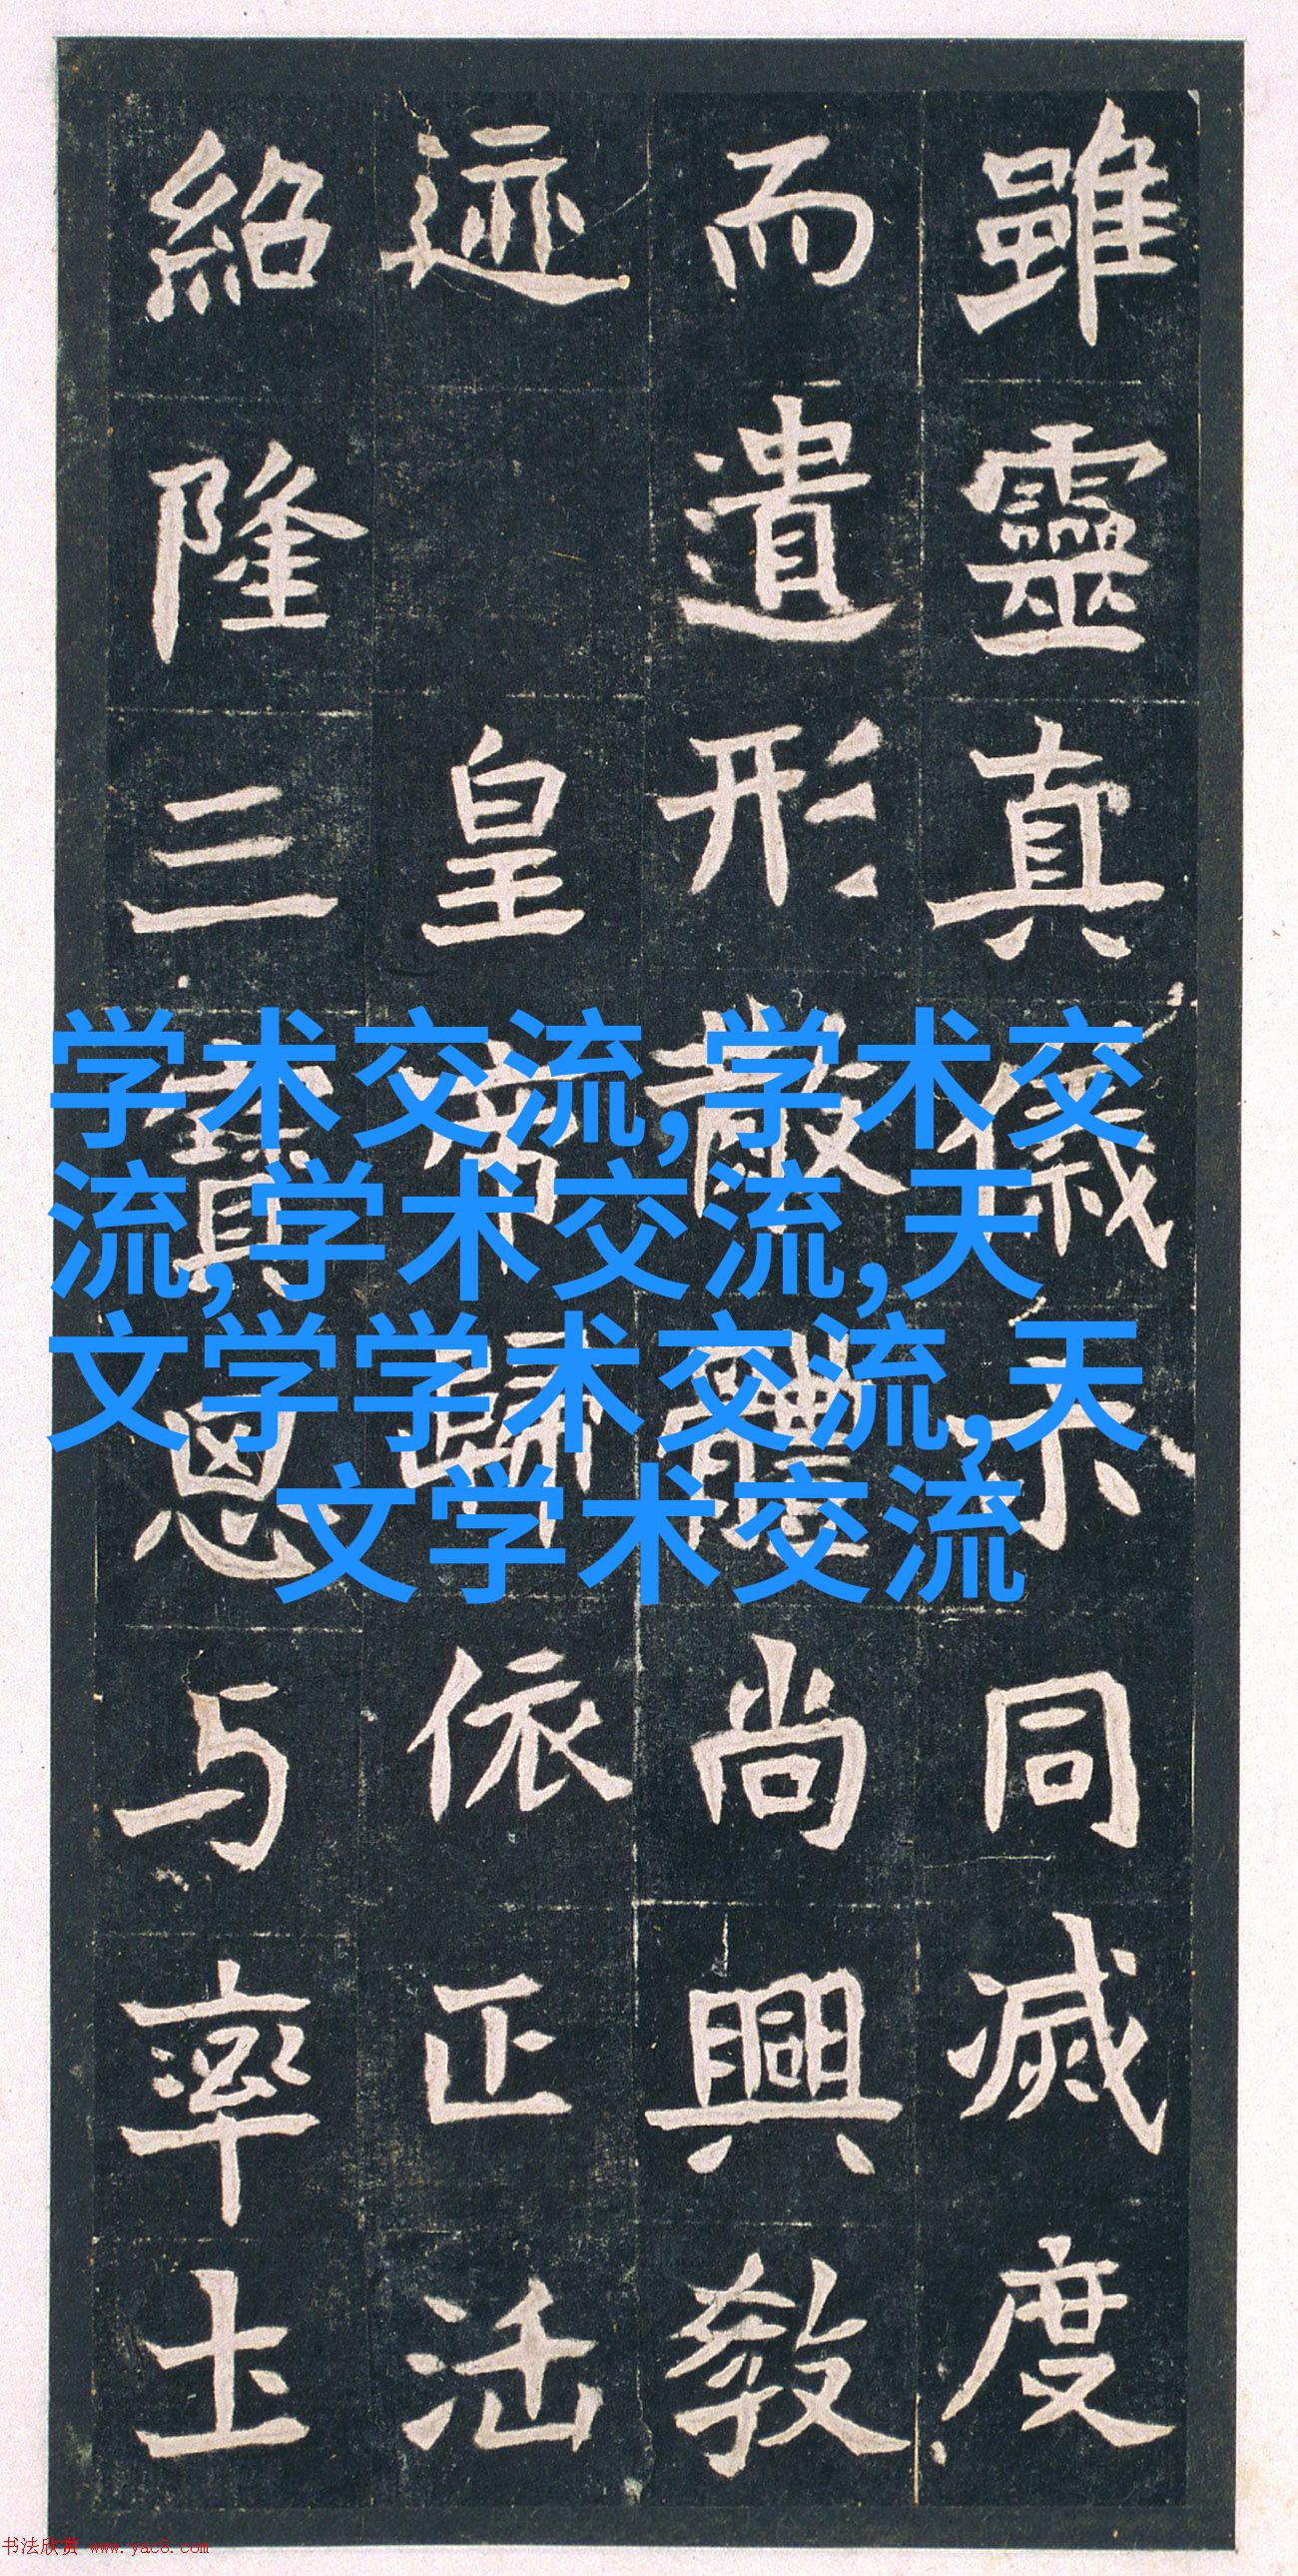 雖靈真儀不同滅度
而遺形嚴體尚興教
迹 皇帝歸依正法
紹隆三寶思与率土
学术交流,学术交
流,学术交流,天
文学学术交流,天
文学术交流
书法欣赏 www.yac8.com